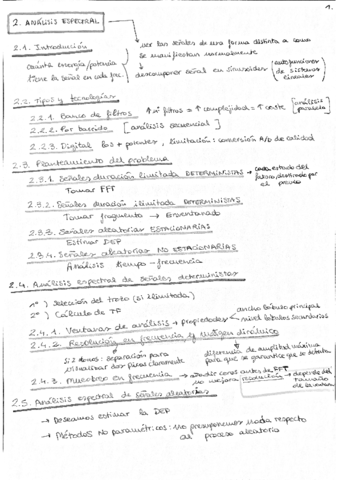 1.
2. ANÁLISIS ESPECTRAL
2.1. Introducción
cuánta energía/potencia
tiene la señal en cada frec.
ver las señales de una forma distinta a como
se manifiestan normalmente
descomponer señal en sinusoides (autofunciones
de sistemas
lineales)
2.2. Tipos y tecnologías
2.2.1. Banco de filtros ↑ nº filtros = ↑ complejidad = ↑ coste [análisis
paralelo]
2.2.2. Por barrido [análisis secuencial]
2.2.3. Digital los + potentes, limitación: conversión A/D de calidad
2.3. Planteamiento del problema
2.3.1. Señales duración limitada DETERMINISTAS →
Tomar FFT
2.3.2. Señales duración ilimitada DETERMINISTAS
Tomar fragmento → Enventanado
2.3.3. Señales aleatorias ESTACIONARIAS
Estimar DEP
2.3.4. Señales aleatorias NO ESTACIONARIAS
Análisis tiempo-frecuencia
2.4. Análisis espectral de señales deterministas
1º) Selección del trozo (si ilimitada)
2º) Cálculo de TF
2.4.1. Ventanas de análisis → propiedades
ancho lóbulo principal
nivel lóbulos secundarios
2.4.2. Resolución en frecuencia y margen dinámico
Si 2 tonos: separación para
visualizar dos picos claramente
diferencia de amplitud máxima
para que se garantice que se detecta
2.4.3. Muestreo en frecuencia → añadir ceros antes de FFT
no mejora resolución → depende del
tamaño
de la ventana
2.5. Análisis espectral de señales aleatorias
→ Deseamos estimar la DEP
→ Métodos No paramétricos: No presuponemos nada respecto
al proceso aleatorio